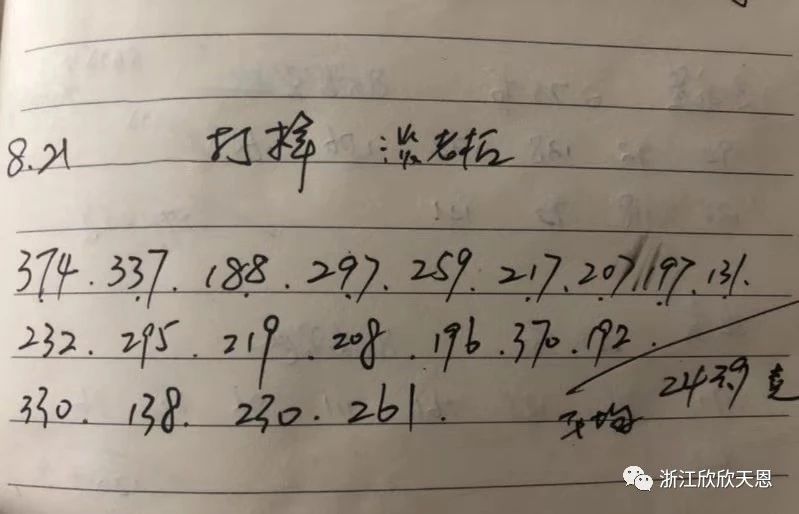 8.21 打样 : 老板
374. 337. 188. 297. 259. 217. 207 197. 131.
232. 295. 219. 208. 196. 370. 192.
330. 138. 230. 261. 平均 243.9 克
浙江欣欣天恩